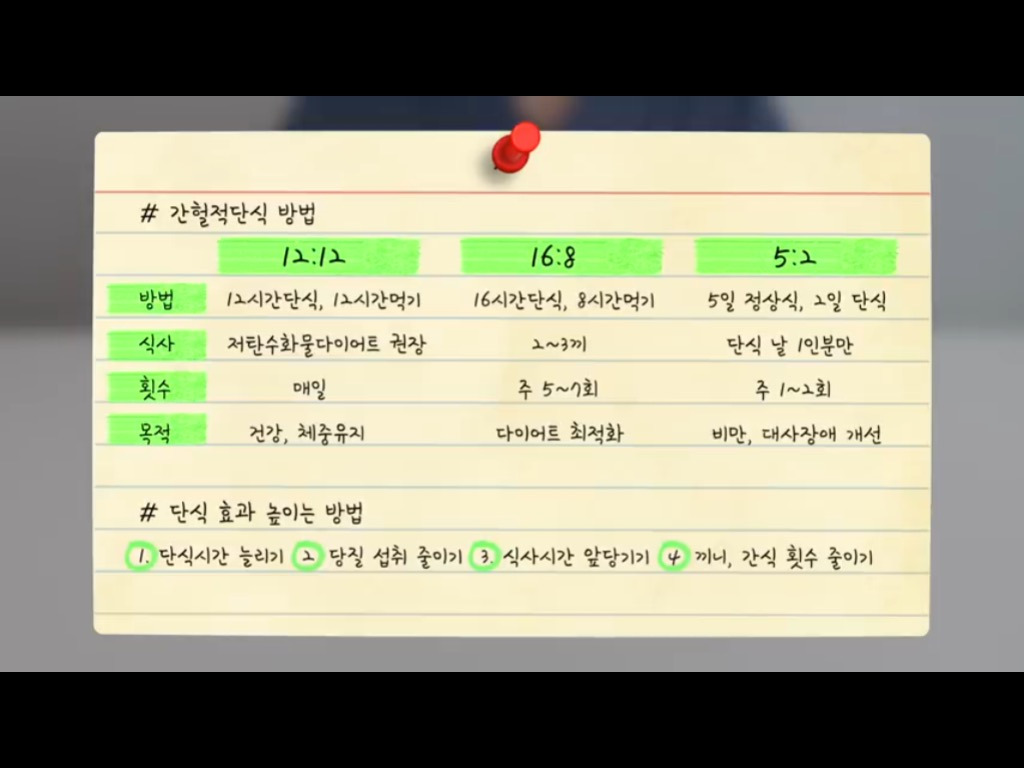 # 간헐적단식 방법
12:12 16:8 5:2
방법 12시간단식, 12시간먹기 16시간단식, 8시간먹기 5일 정상식, 2일 단식
식사 저탄수화물다이어트 권장 2~3끼 단식 날 1인분만
횟수 매일 주 5~7회 주 1~2회
목적 건강, 체중유지 다이어트 최적화 비만, 대사장애 개선
# 단식 효과 높이는 방법
1. 단식시간 늘리기 2. 당질 섭취 줄이기 3. 식사시간 앞당기기 4 끼니, 간식 횟수 줄이기